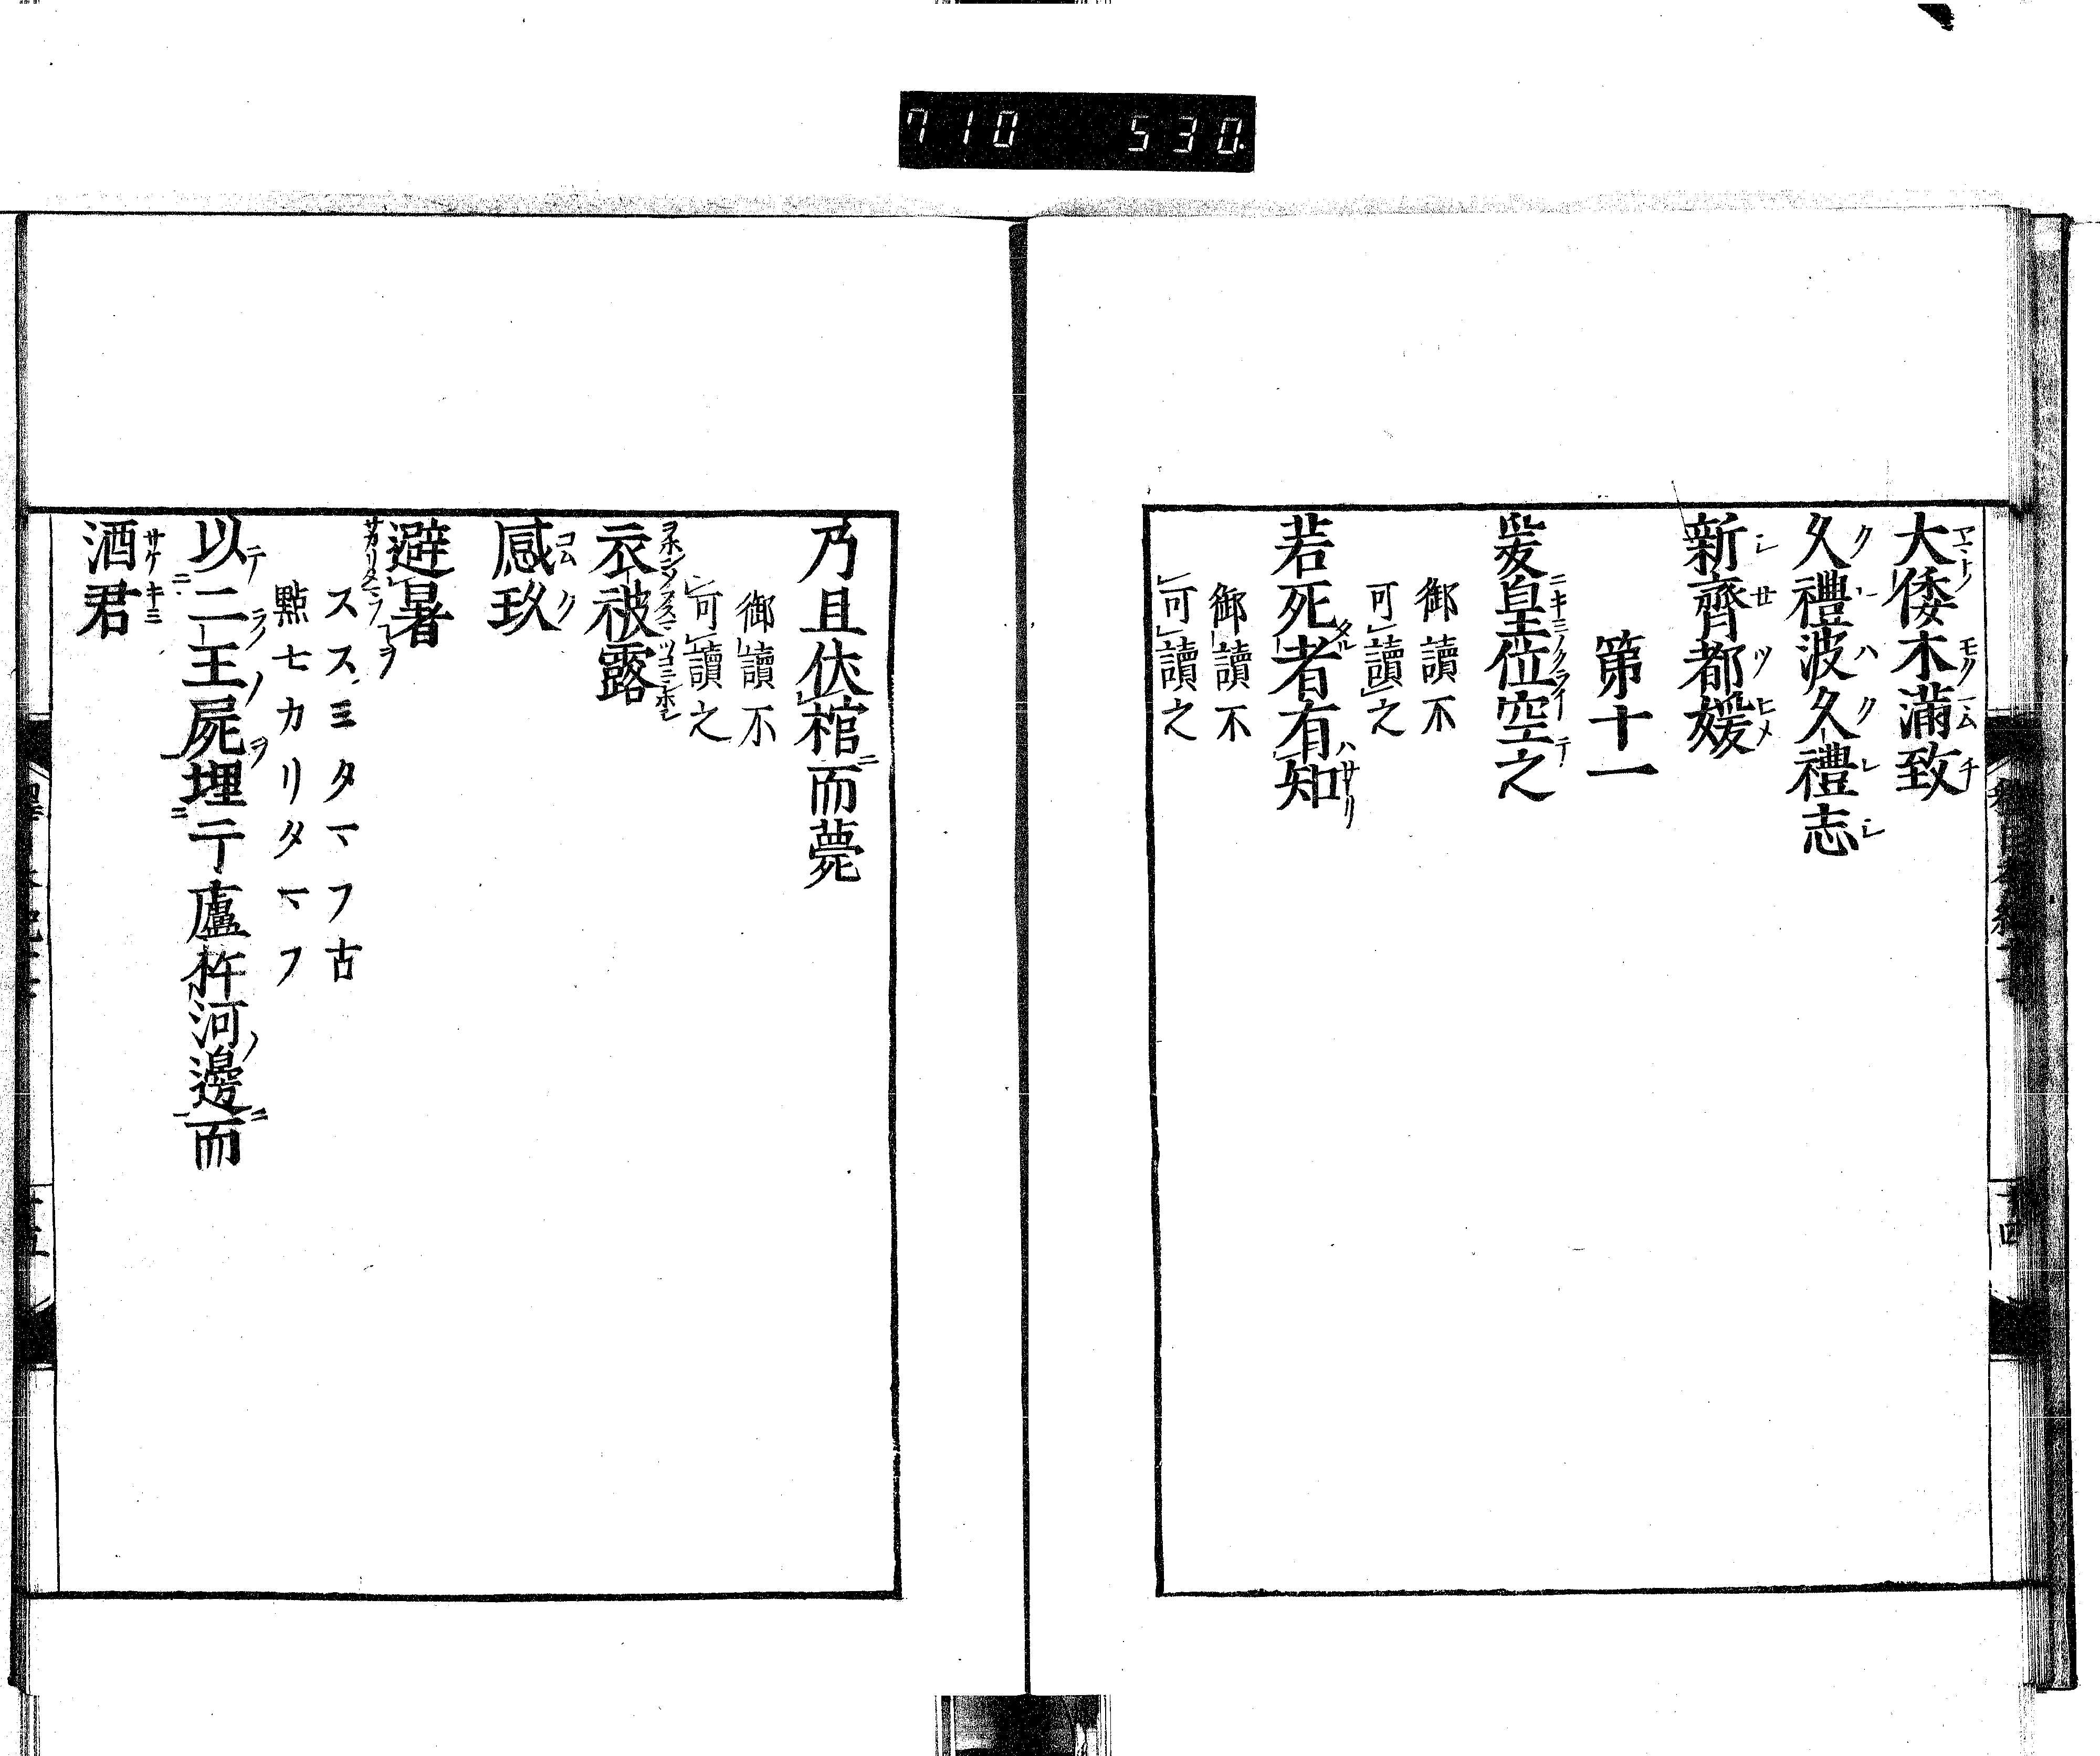 710 530
大倭木滿致
久禮波久禮志
新齊都媛
第十一
爰皇位空之
御讀不
可讀之
若死者有知
御讀不
可讀之
乃且伏棺而薨
御讀不
可讀之
衣被露
感玖
避暑
ススミタマフ古
點七カリタマフ
以二王屍埋于廬杵河邊而
酒君
サケキミ